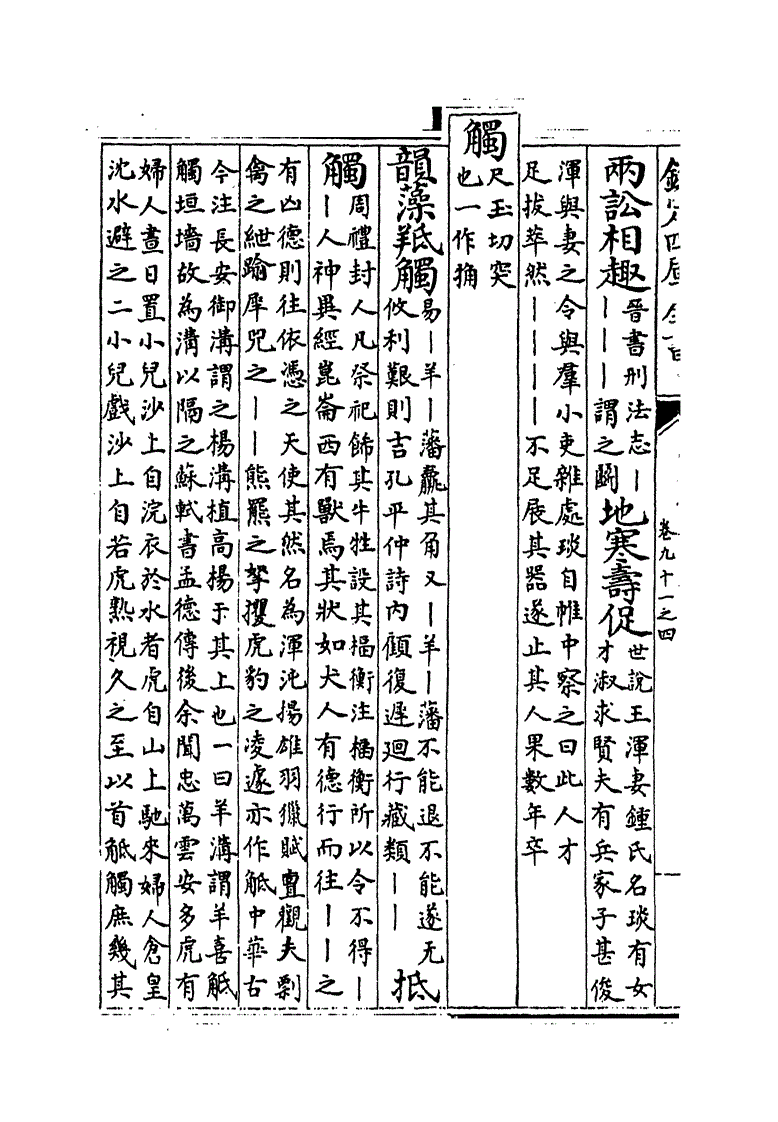 欽定四庫全書
卷九十一之四
兩訟相趣
晉書刑法志丨
丨丨丨謂之鬭
地寒壽促
世說王渾妻鍾氏名琰有女
才淑求賢夫有兵家子甚俊
渾與妻之令與羣小吏雜處琰自帷中察之曰此人才
足拔萃然丨丨丨丨不足展其器遂止其人果數年卒
觸
尺玉切突
也一作㹱
韻藻羝觸
易丨羊丨藩羸其角又丨羊丨藩不能退不能遂无
攸利艱則吉孔平仲詩內顧復遲廻行藏類丨丨
抵
觸
周禮封人凡祭祀飾其牛牲設其楅衡注楅衡所以令不得丨
丨人神異經崑崙西有獸焉其狀如犬人有德行而往丨丨之
有凶德則往依憑之天使其然名為渾沌揚雄羽獵賦亶觀夫剽
禽之紲踰犀兕之丨丨熊羆之挐攫虎豹之凌遽亦作觝中華古
今注長安御溝謂之楊溝植高楊于其上也一曰羊溝謂羊喜觝
觸垣墻故為溝以隔之蘇軾書孟德傳後余聞忠萬雲安多虎有
婦人晝日置小兒沙上自浣衣於水者虎自山上馳來婦人倉皇
沈水避之二小兒戲沙上自若虎熟視久之至以首觝觸庶幾其